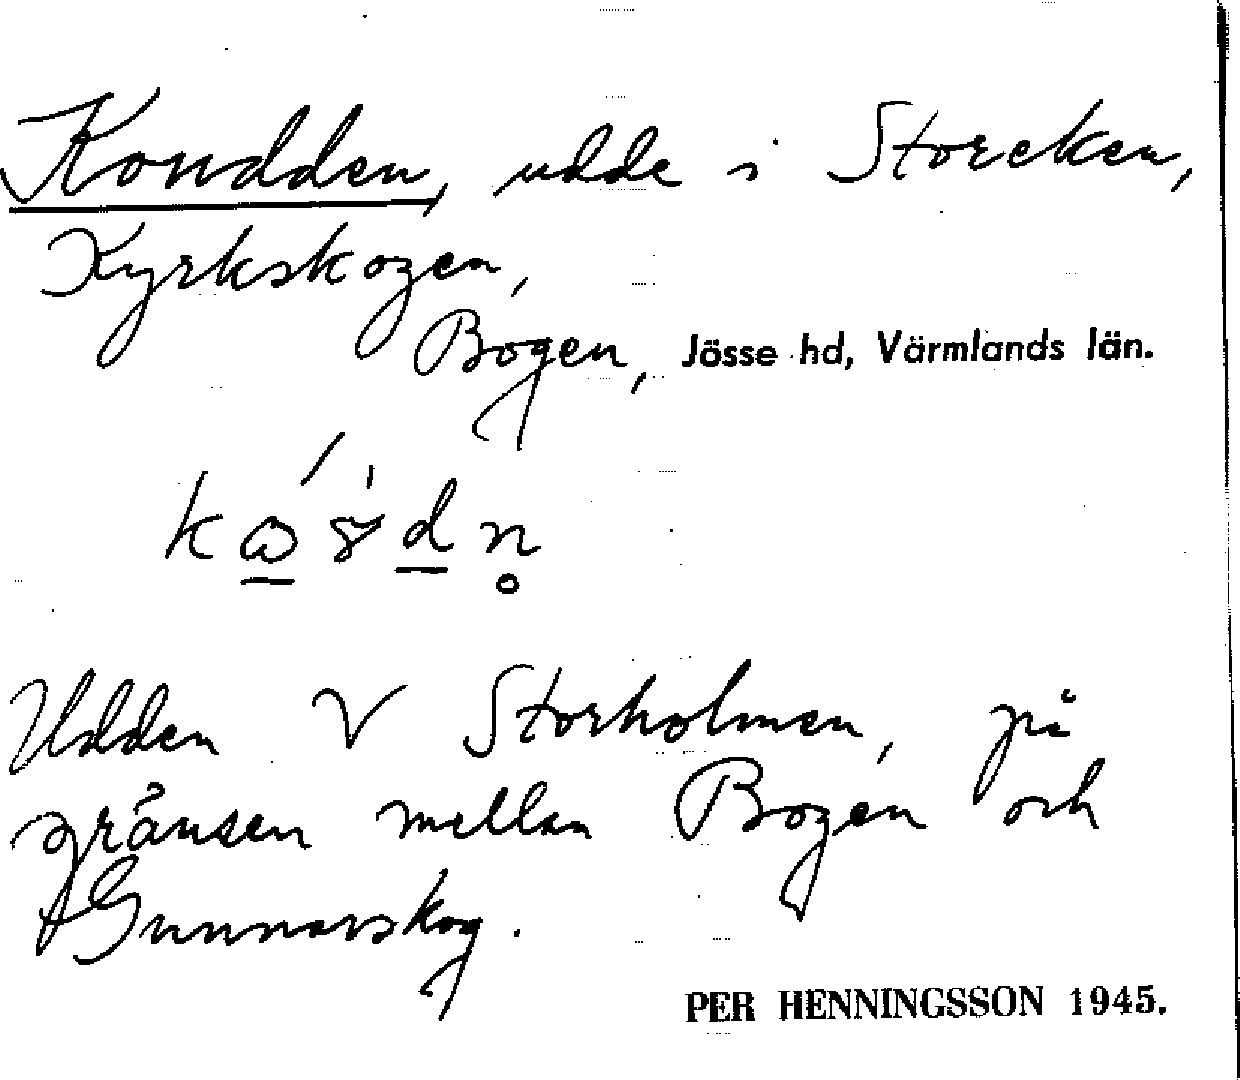 Koudden, udde i Storeken,
Kyrkskogen,
Bogen, Jösse hd, Värmlands län.
Udden V Storholmen, på
gränsen mellan Bogen och
Gunnarskog.
PER HENNINGSSON 1945.